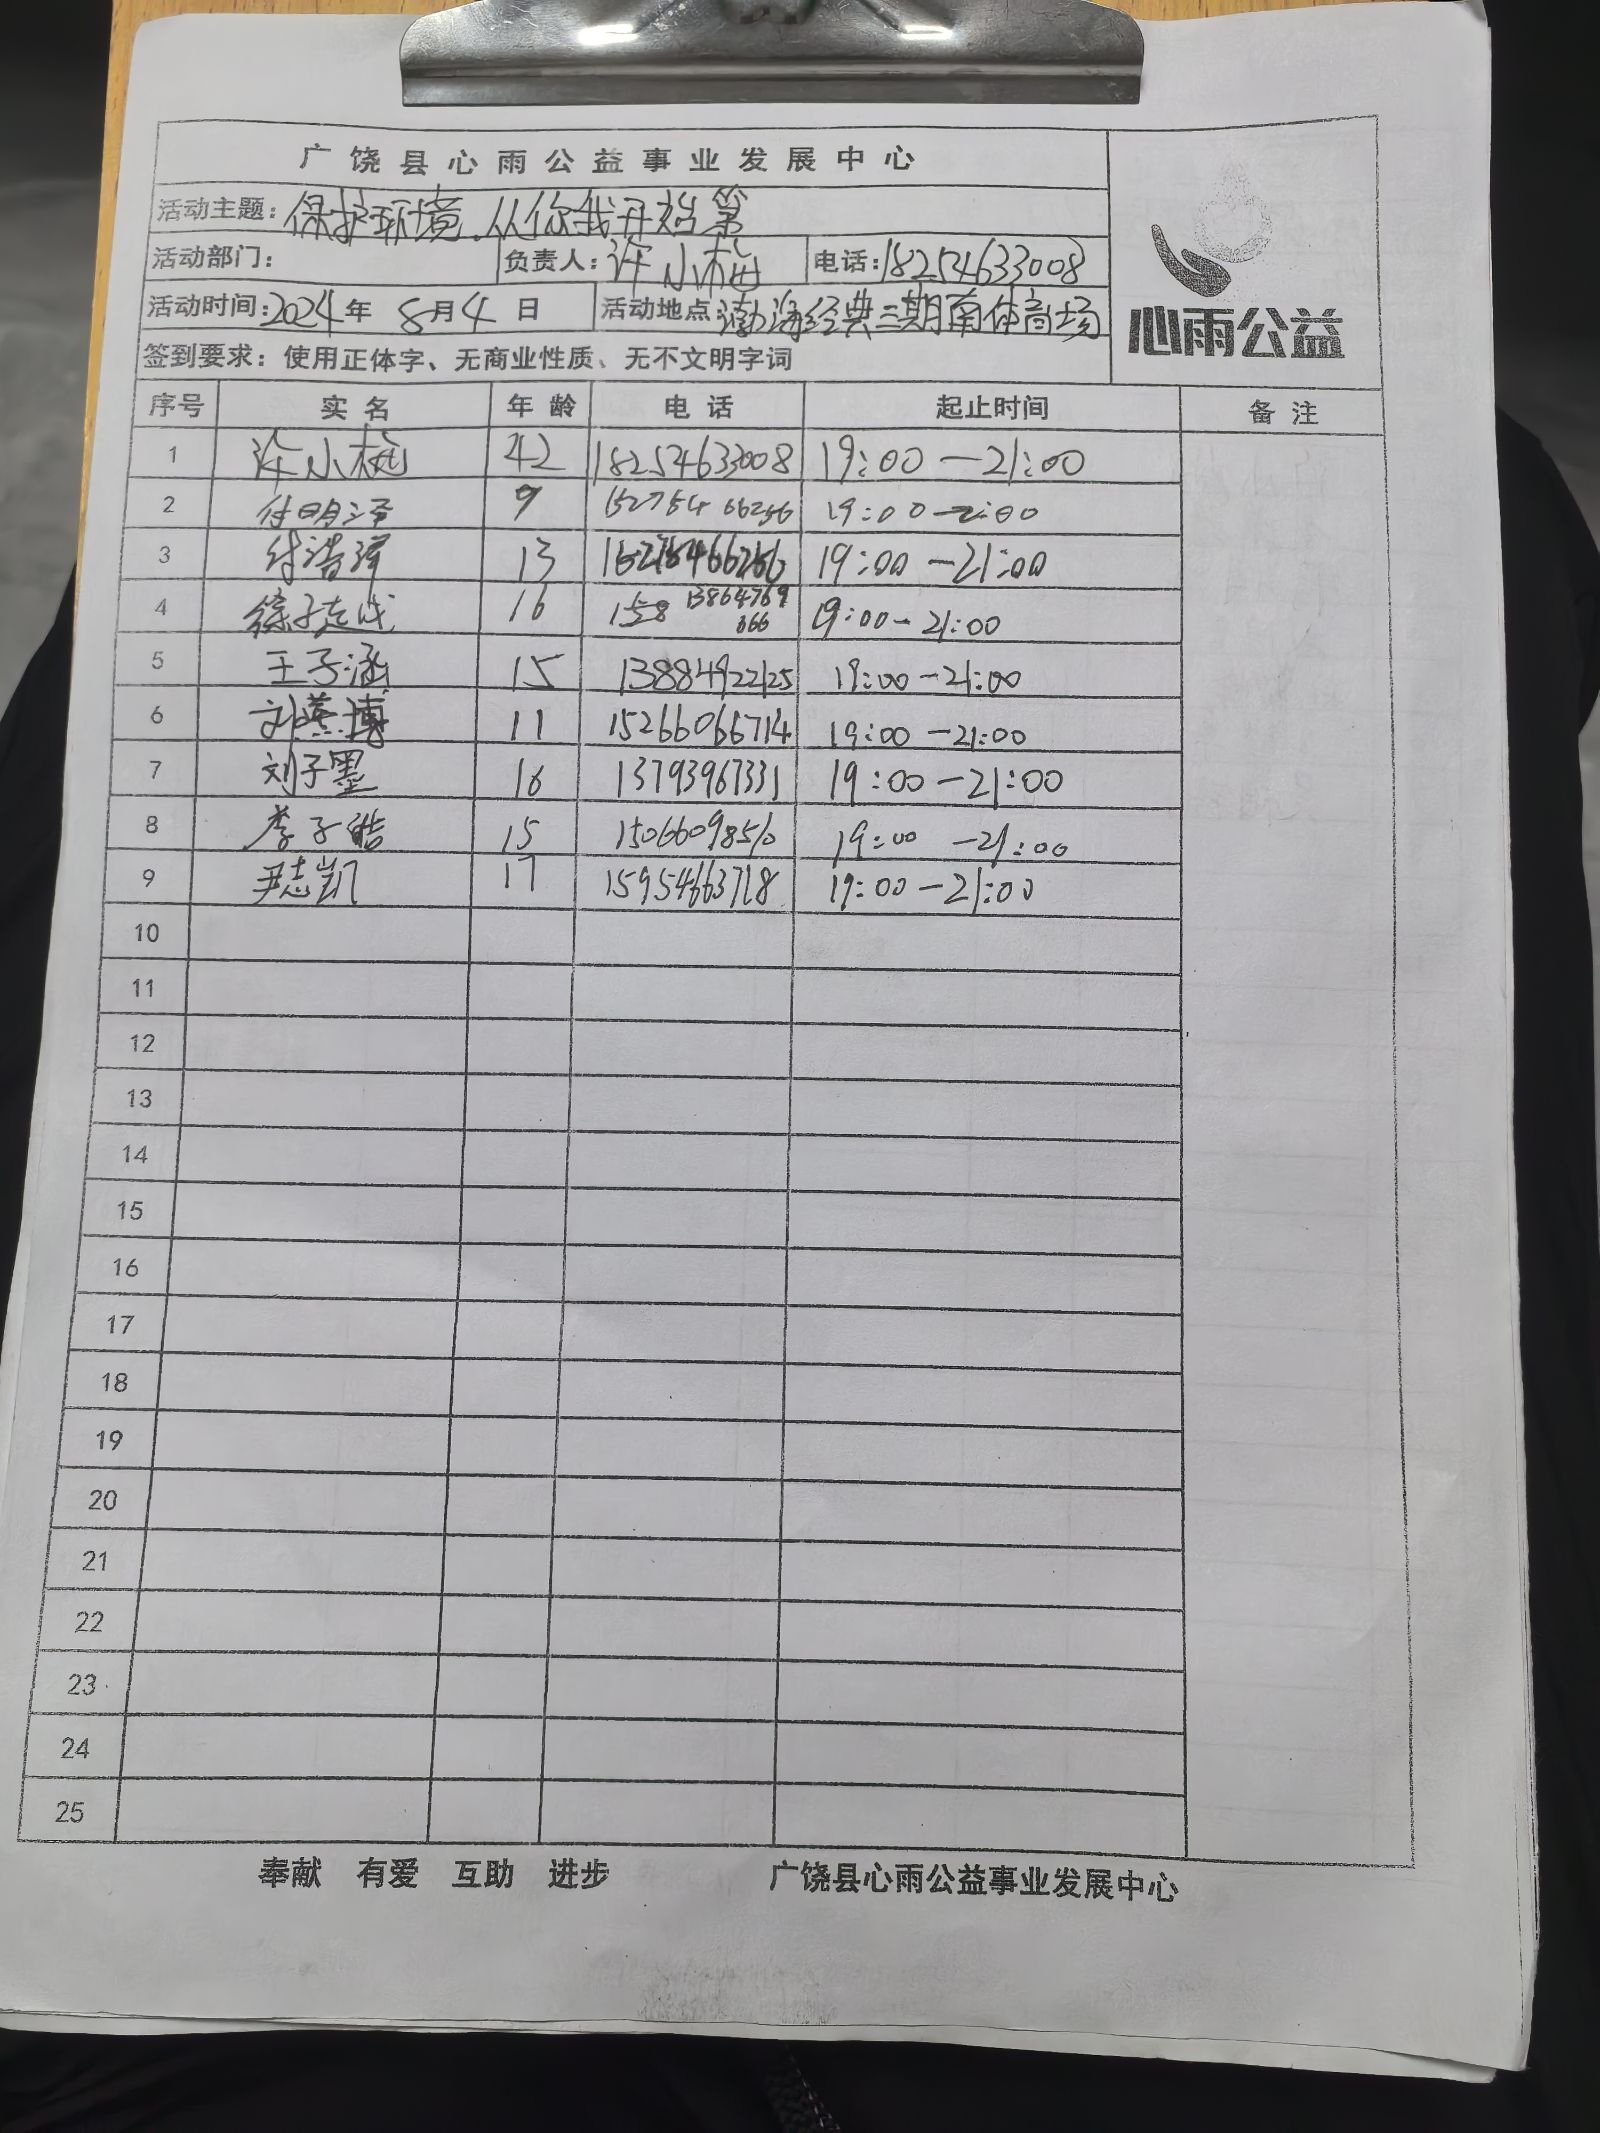 广饶县心雨公益事业发展中心
活动主题：保护环境.从你我开始第
活动部门： 负责人：许小梅 电话：18254633008
活动时间：2024年 8月4日 活动地点：渤海经典三期南体育场
心雨公益
签到要求：使用正体字、无商业性质、无不文明字词
序号 实名 年龄 电话 起止时间 备注
1 许小梅 42 18254633008 19:00—21:00
2 付明泽 9 15275466256 19:00—21:00
3 付浩泽 13 19:00—21:00
4 徐子 16 158 13864769 866 19:00—21:00
5 王子涵 15 13884922125 19:00—21:00
6 刘燕博 11 15266066714 19:00—21:00
7 刘子墨 16 13793967331 19:00—21:00
8 李子皓 15 15066098510 19:00—21:00
9 尹志凯 17 15954663718 19:00—21:00
10
11
12
13
14
15
16
17
18
19
20
21
22
23
24
25
奉献 有爱 互助 进步 广饶县心雨公益事业发展中心